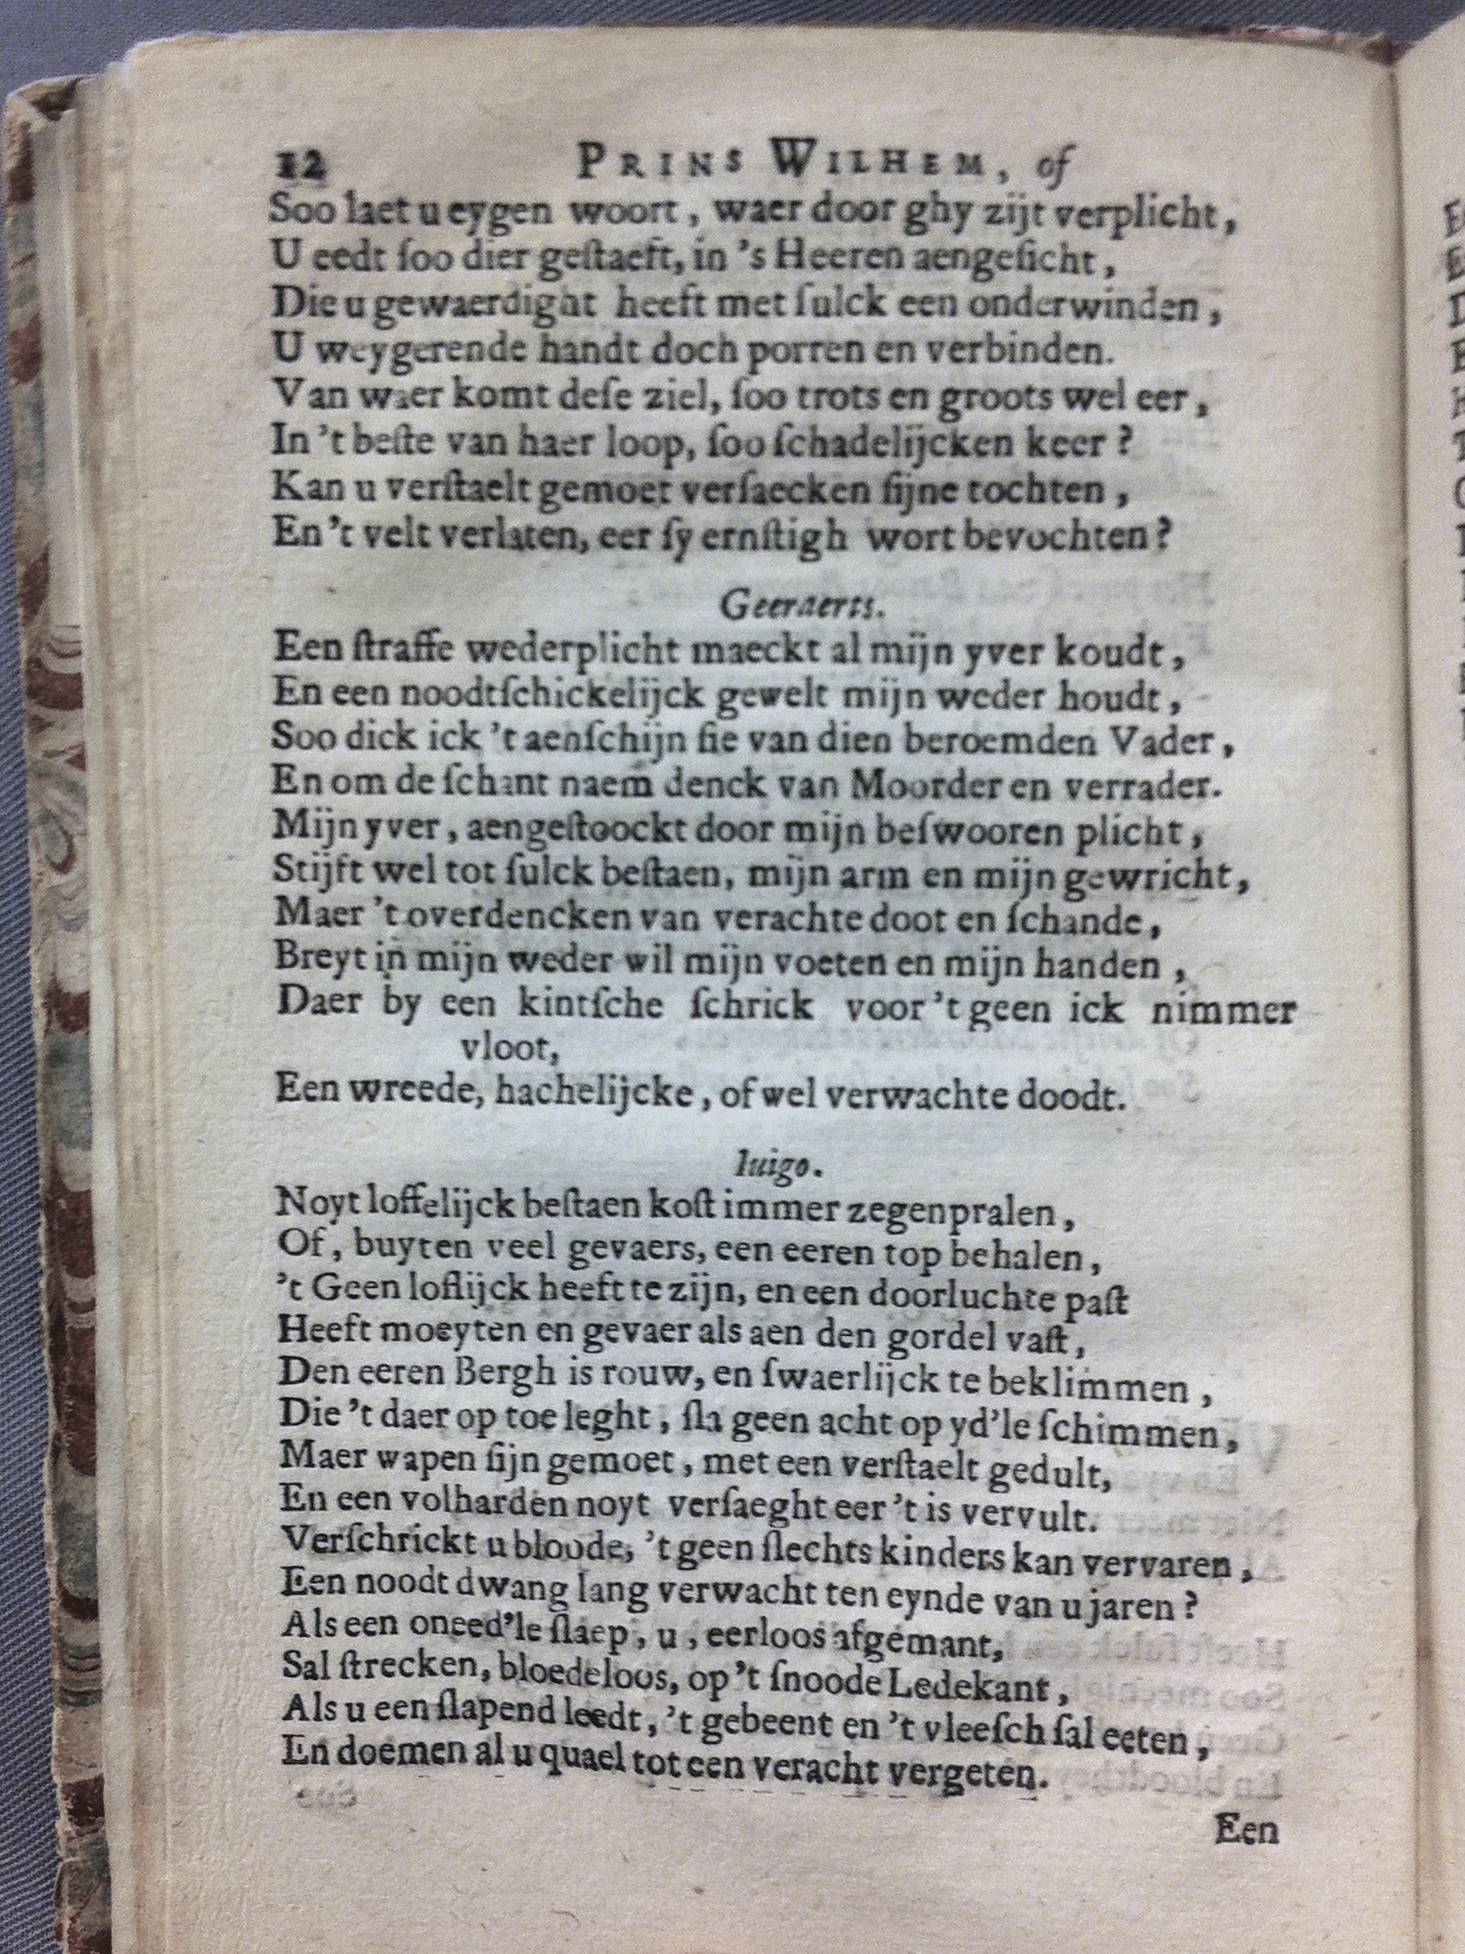 12 PRINS WILHEM, of
Soo laet u eygen woort, waer door ghy zijt verplicht,
U eedt ſoo dier geſtaeft, in 's Heeren aengeſicht,
Die u gewaerdight heeft met ſulck een onderwinden,
U weygerende handt doch porren en verbinden.
Van waer komt deſe ziel, ſoo trots en groots wel eer,
In 't beſte van haer loop, ſoo ſchadelijcken keer?
Kan u verſtaelt gemoet verſaecken ſijne tochten,
En 't velt verlaten, eer ſy ernſtigh wort bevochten?
Geeraerts.
Een ſtraffe wederplicht maeckt al mijn yver koudt,
En een noodtſchickelijck gewelt mijn weder houdt,
Soo dick ick 't aenſchijn ſie van dien beroemden Vader,
En om de ſchant naem denck van Moorder en verrader.
Mijn yver, aengeſtoockt door mijn beſwooren plicht,
Stijft wel tot ſulck beſtaen, mijn arm en mijn gewricht,
Maer 't overdencken van verachte doot en ſchande,
Breyt in mijn weder wil mijn voeten en mijn handen,
Daer by een kintſche ſchrick voor 't geen ick nimmer
vloot,
Een wreede, hachelijcke, of wel verwachte doodt.
Iuigo.
Noyt loffelijck beſtaen koſt immer zegenpralen,
Of, buyten veel gevaers, een eeren top behalen,
't Geen loflijck heeft te zijn, en een doorluchte paſt
Heeft moeyten en gevaer als aen den gordel vaſt,
Den eeren Bergh is rouw, en ſwaerlijck te beklimmen,
Die 't daer op toe leght, ſla geen acht op yd'le ſchimmen,
Maer wapen ſijn gemoet, met een verſtaelt gedult,
En een volharden noyt verſaeght eer 't is vervult.
Verſchrickt u bloode, 't geen ſlechts kinders kan vervaren,
Een noodt dwang lang verwacht ten eynde van u jaren?
Als een oneed'le ſlaep, u, eerloos afgemant,
Sal ſtrecken, bloedeloos, op 't ſnoode Ledekant,
Als u een ſlapend leedt, 't gebeent en 't vleeſch ſal eeten,
En doemen al u quael tot een veracht vergeten.
Een